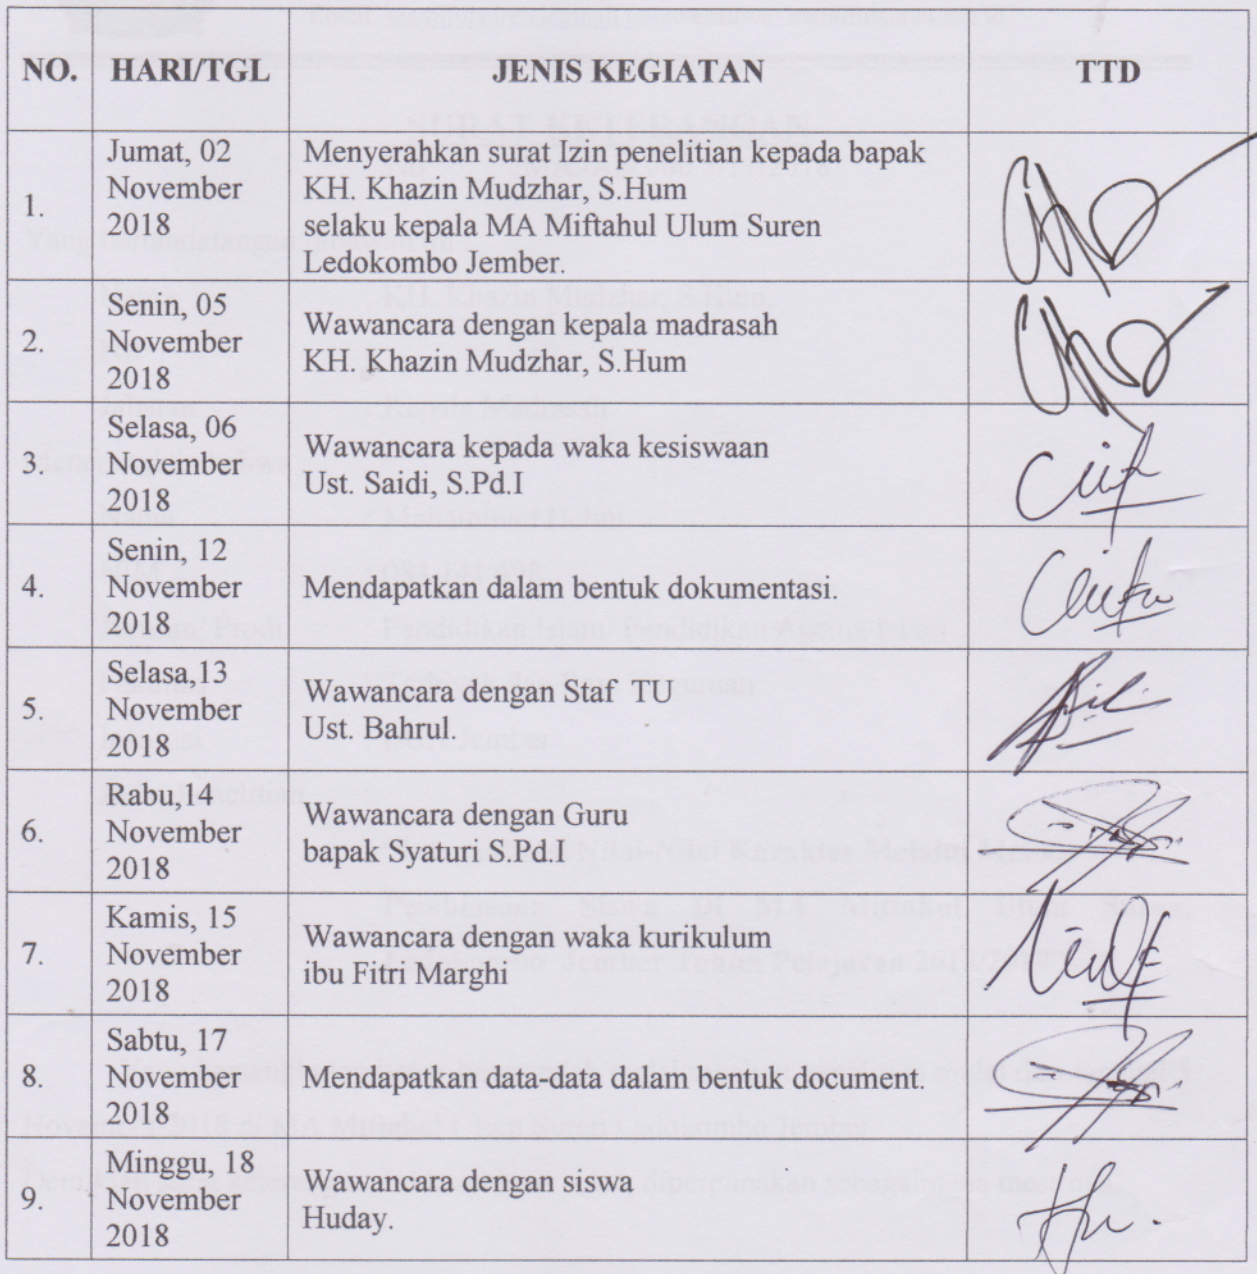 NO. HARI/TGL JENIS KEGIATAN TTD
1.
Jumat, 02
November
2018
Menyerahkan surat Izin penelitian kepada bapak
KH. Khazin Mudzhar, S.Hum
selaku kepala MA Miftahul Ulum Suren
Ledokombo Jember.
2.
Senin, 05
November
2018
Wawancara dengan kepala madrasah
KH. Khazin Mudzhar, S.Hum
3.
Selasa, 06
November
2018
Wawancara kepada waka kesiswaan
Ust. Saidi, S.Pd.I
4.
Senin, 12
November
2018
Mendapatkan dalam bentuk dokumentasi.
5.
Selasa,13
November
2018
Wawancara dengan Staf TU
Ust. Bahrul.
6.
Rabu,14
November
2018
Wawancara dengan Guru
bapak Syaturi S.Pd.I
7.
Kamis, 15
November
2018
Wawancara dengan waka kurikulum
ibu Fitri Marghi
8.
Sabtu, 17
November
2018
Mendapatkan data-data dalam bentuk document.
9.
Minggu, 18
November
2018
Wawancara dengan siswa
Huday.